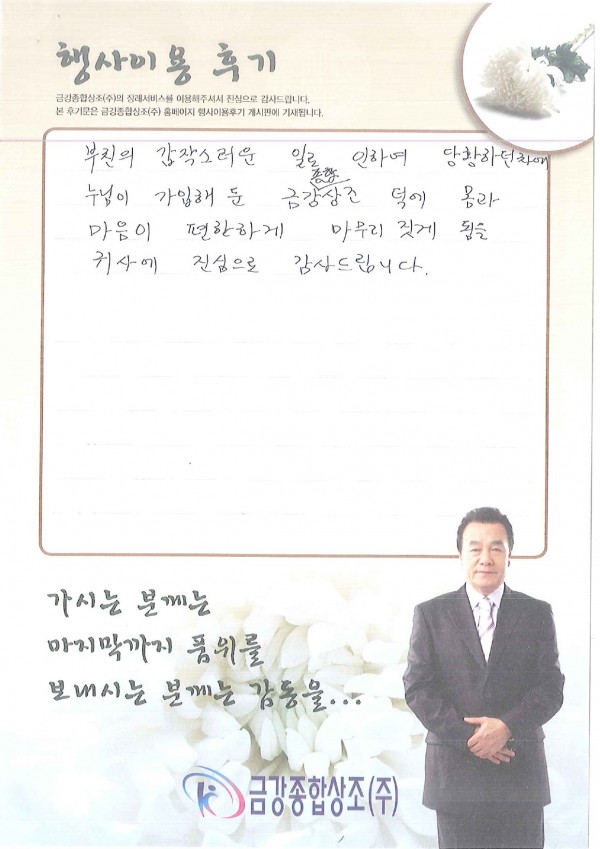 행사이용 후기
금강종합상조(주)의 장례서비스를 이용해주셔서 진심으로 감사드립니다.
본 후기문은 금강종합상조(주) 홈페이지 행사이용후기 게시판에 기재됩니다.
부친의 갑작스러운 일로 인하여 당황하던차에
누님이 가입해 둔 금강종합상조 덕에 몸과
마음이 편한하게 마무리 짓게 됨을
귀사에 진심으로 감상드립니다.
가시는 분께는
마지막까지 품위를
보내시는 분께는 감동을...
금강종합상조(주)